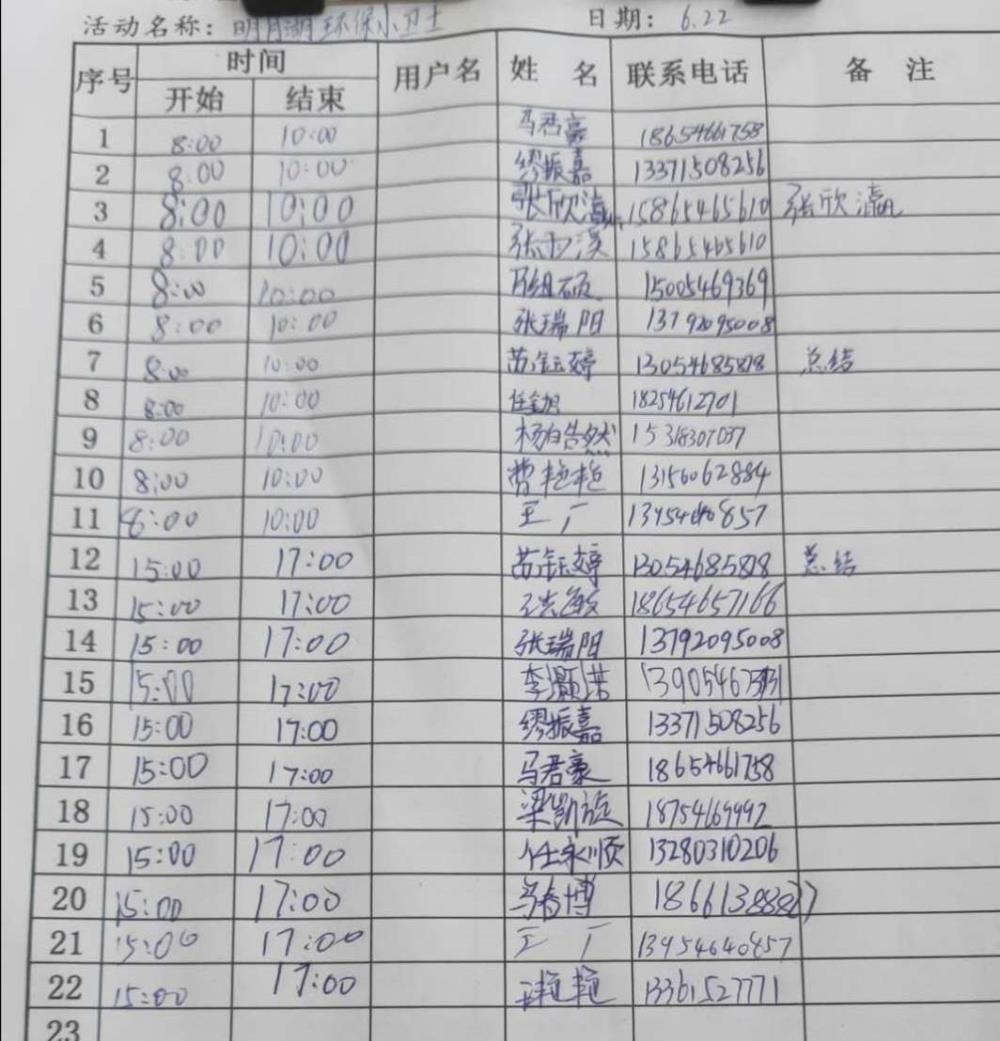 活动名称: 明月湖环保小卫士 日期: 6.22
序号 时间 用户名 姓 名 联系电话 备 注
开始 结束
1 8:00 10:00 马君豪 18654661758
2 8:00 10:00 缪振嘉 13371508256
3 8:00 10:00 张欣瀛 15865465610 张欣瀛
4 8:00 10:00 15865465610
5 8:00 10:00 15005469369
6 8:00 10:00 张瑞阳 13792095008
7 8:00 10:00 苏钰婷 13054685818 总结
8 8:00 10:00 18254612701
9 8:00 10:00 杨皓然 15318307037
10 8:00 10:00 费艳艳 13156062884
11 8:00 10:00 王厂
12 15:00 17:00 苏钰婷 13054685818 总结
13 15:00 17:00 18654657166
14 15:00 17:00 张瑞阳 13792095008
15 15:00 17:00 李灏诺
16 15:00 17:00 缪振嘉 13371508256
17 15:00 17:00 马君豪 18654661758
18 15:00 17:00 梁凯旋 18754669992
19 15:00 17:00 任永顺 13280310206
20 15:00 17:00
21 15:00 17:00 王厂 13954640857
22 15:00 17:00 13361527771
23